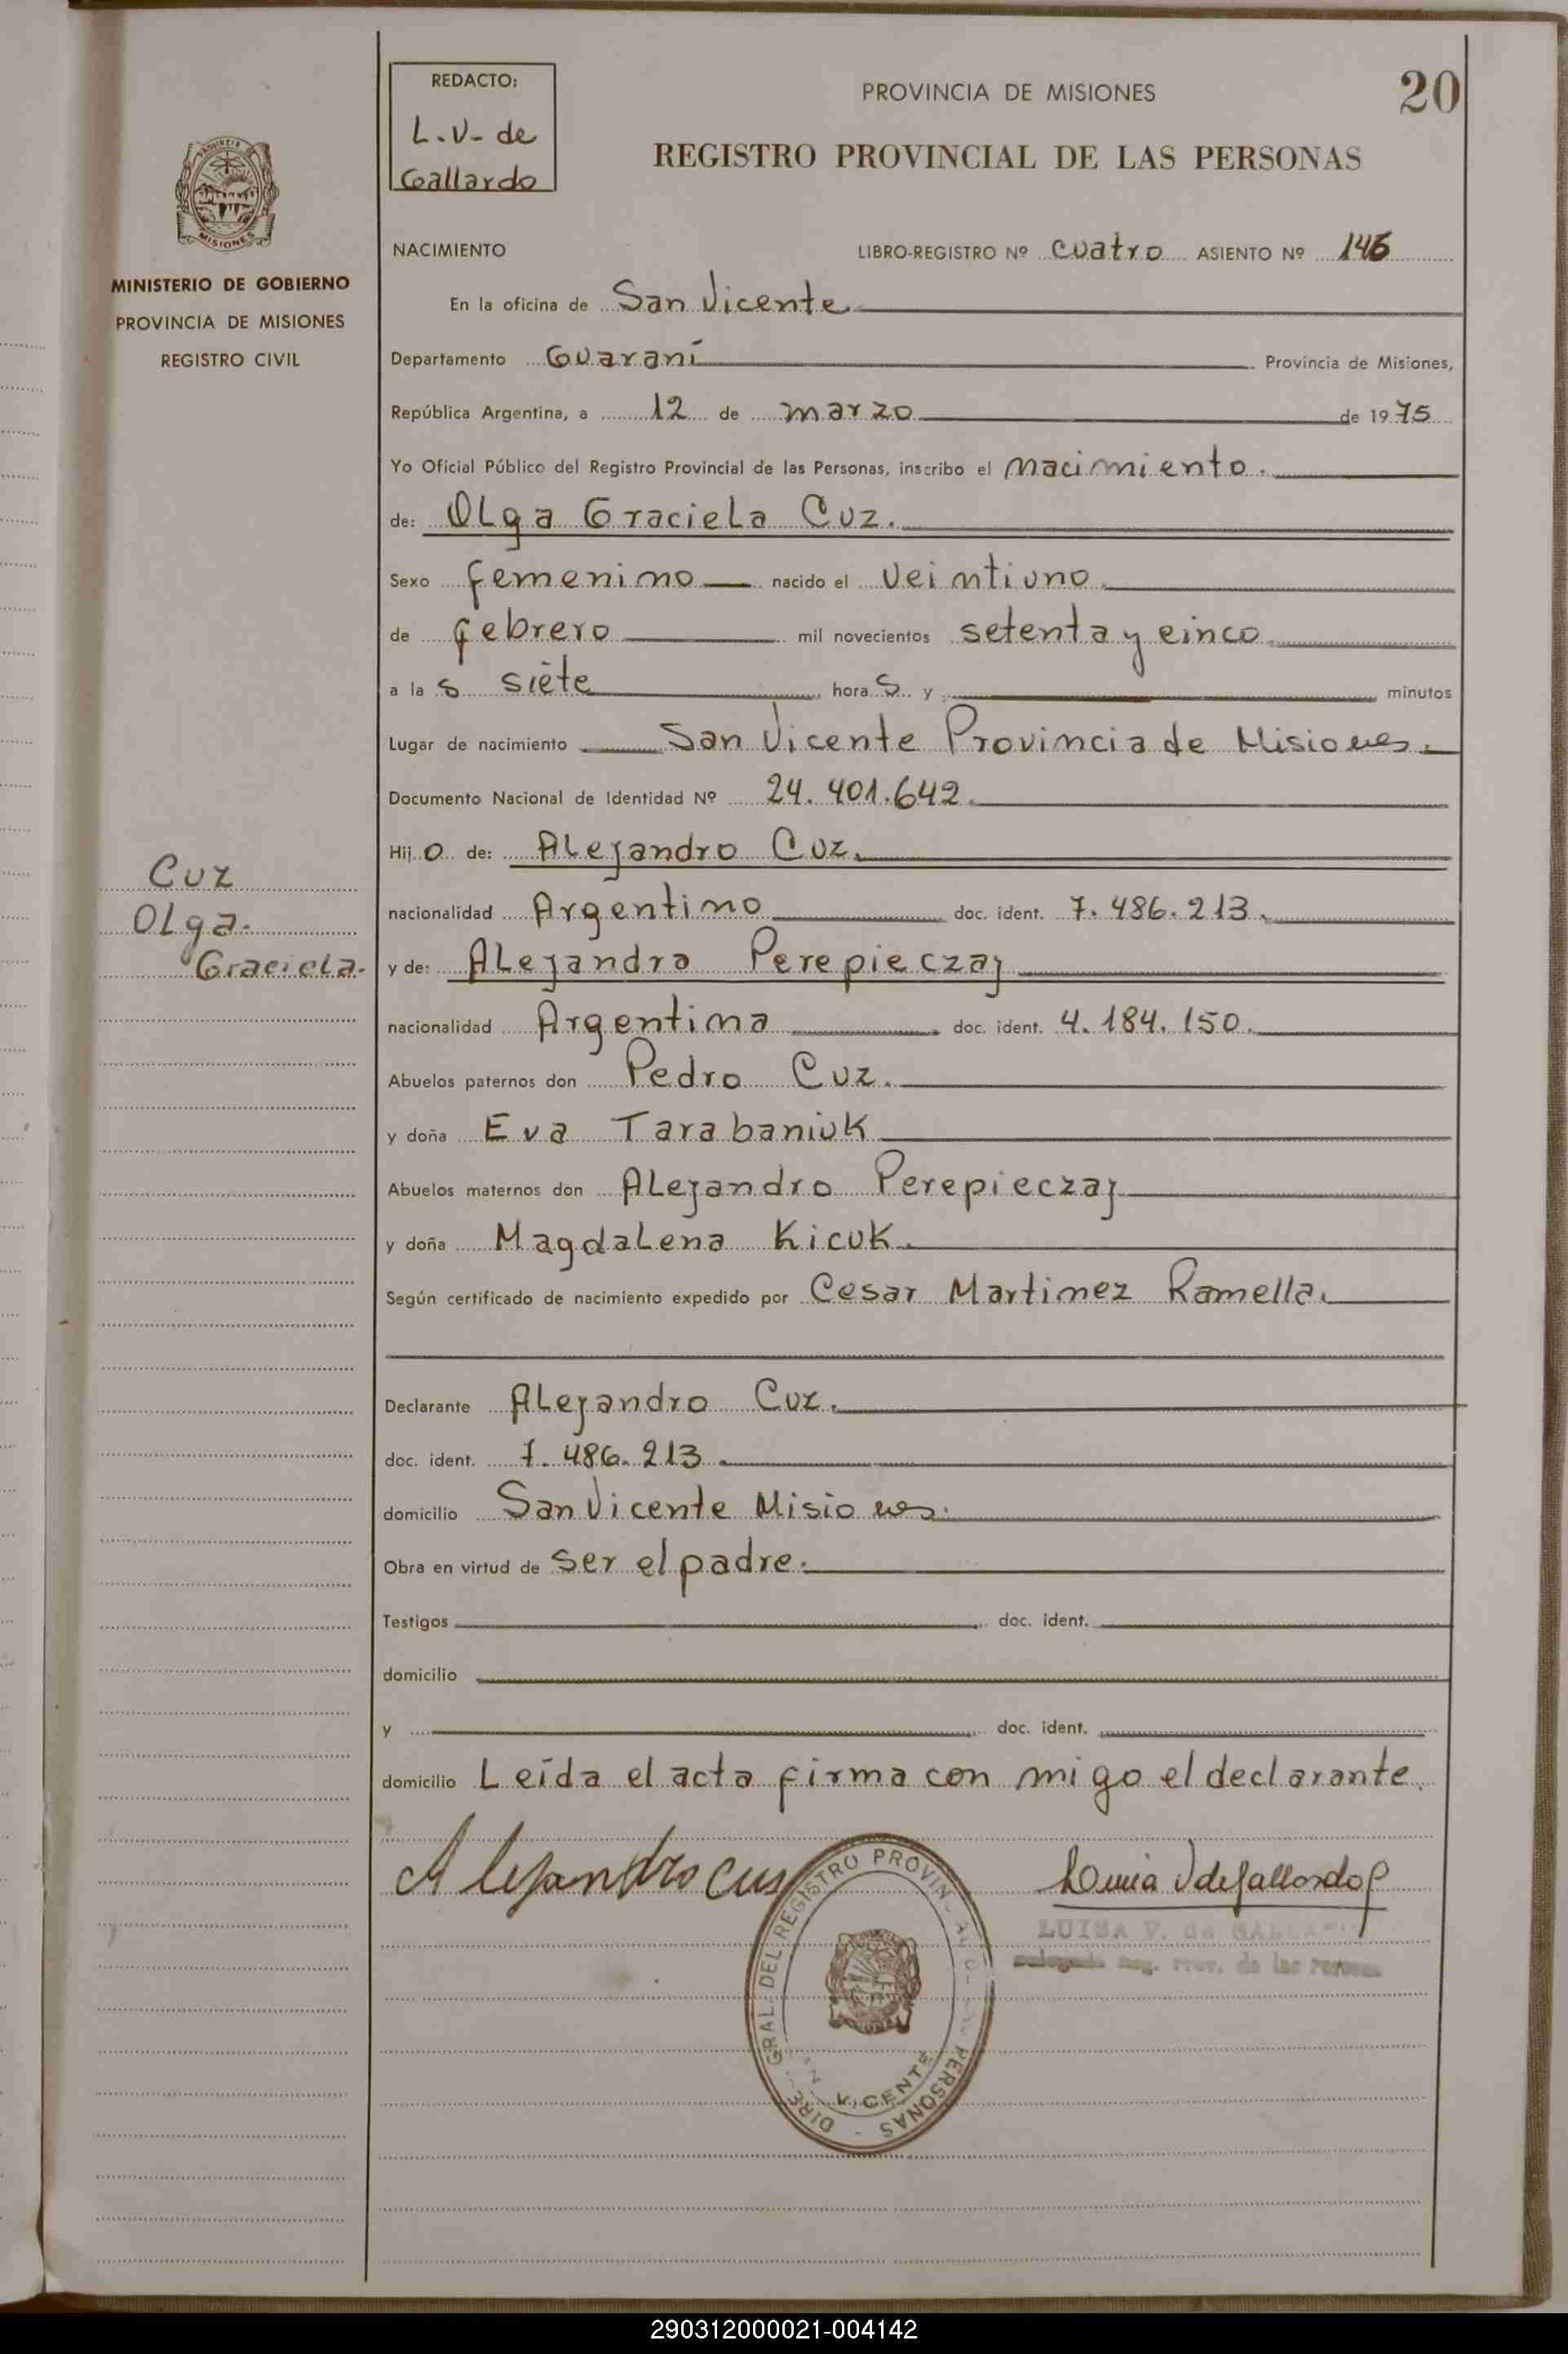 REDACTO:
L.V- de
Gallardo
PROVINCIA DE MISIONES
20
REGISTRO PROVINCIAL DE LAS PERSONAS
MISIONES
MINISTERIO DE GOBIERNO
PROVINCIA DE MISIONES
REGISTRO CIVIL
NACIMIENTO LIBRO-REGISTRO Nº cuatro ASIENTO Nº 146
En la oficina de San Vicente
Departamento Guaraní Provincia de Misiones,
República Argentina, a 12 de marzo de 1975
Yo Oficial Público del Registro Provincial de las Personas, inscribo el nacimiento.
de: Olga Graciela Cuz.
Sexo femenino nacido el veintiuno
de febrero mil novecientos setenta y cinco
a las siete horas y minutos
Lugar de nacimiento San Vicente Provincia de Misiones.
Documento Nacional de Identidad Nº 24.401.642.
Hijo de: Alejandro Cuz.
nacionalidad Argentino doc. ident. 7.486.213.
y de: Alejandra Perepieczaj
nacionalidad Argentina doc. ident. 4.184.150.
Abuelos paternos don Pedro Cuz.
y doña Eva Tarabaniuk
Abuelos maternos don Alejandro Perepieczaj
y doña Magdalena Kicuk.
Según certificado de nacimiento expedido por Cesar Martinez Ramella.
Declarante Alejandro Cuz.
doc. ident. 7.486.213.
domicilio San Vicente Misiones.
Obra en virtud de ser el padre.
Testigos doc. ident.
domicilio
y doc. ident.
domicilio Leída el acta firma con migo el declarante.
Cuz
Olga.
Graciela.
Alejandro cus
Luisa V de Gallardo
LUISA V. de
Reg. Prov. de las Personas
GRAL. DEL REGISTRO PROVIN
PERSONAS - DIRE
VICENTE
290312000021-004142